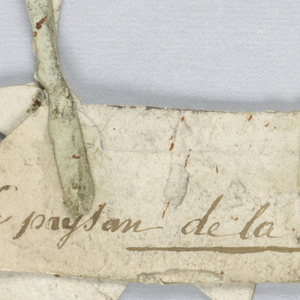 paysan de la